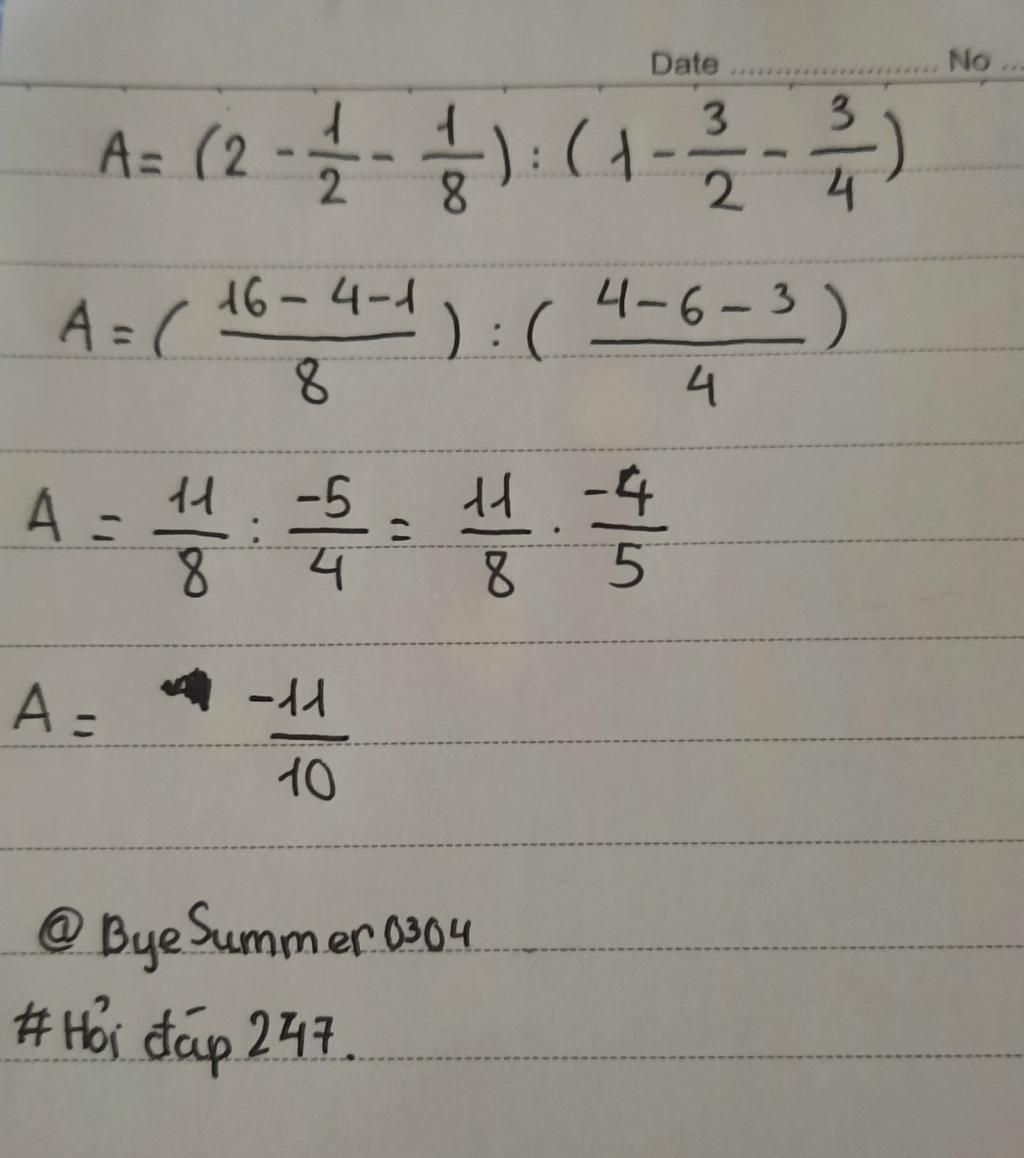 Date ........................ No ...
A = (2 - 1/2 - 1/8) : (1 - 3/2 - 3/4)
A = ( (16 - 4 - 1)/8 ) : ( (4 - 6 - 3)/4 )
A = 11/8 : -5/4 = 11/8 . -4/5
A = -11/10
@ ByeSummer0304
# Hỏi đáp 247.